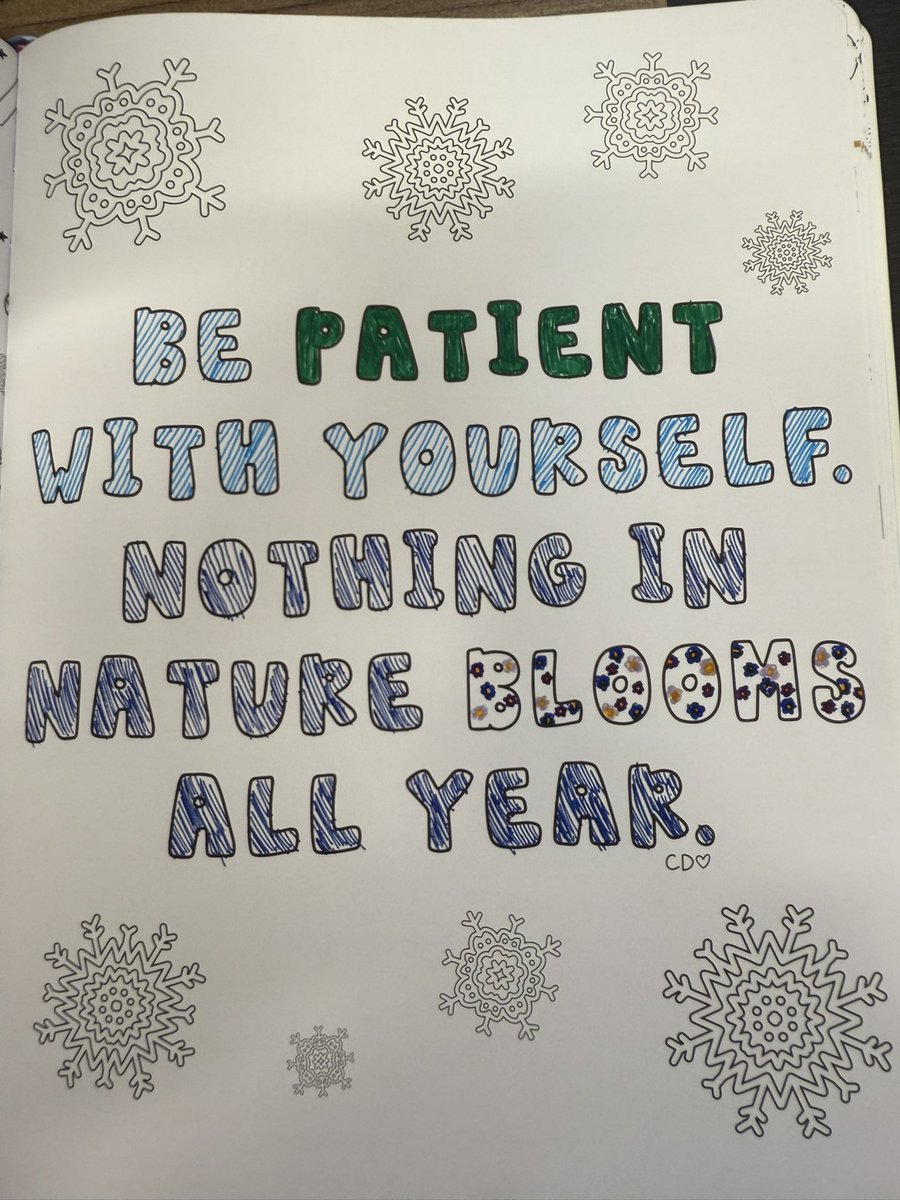 BE PATIENT
WITH YOURSELF.
NOTHING IN
NATURE BLOOMS
ALL YEAR.
CD♡